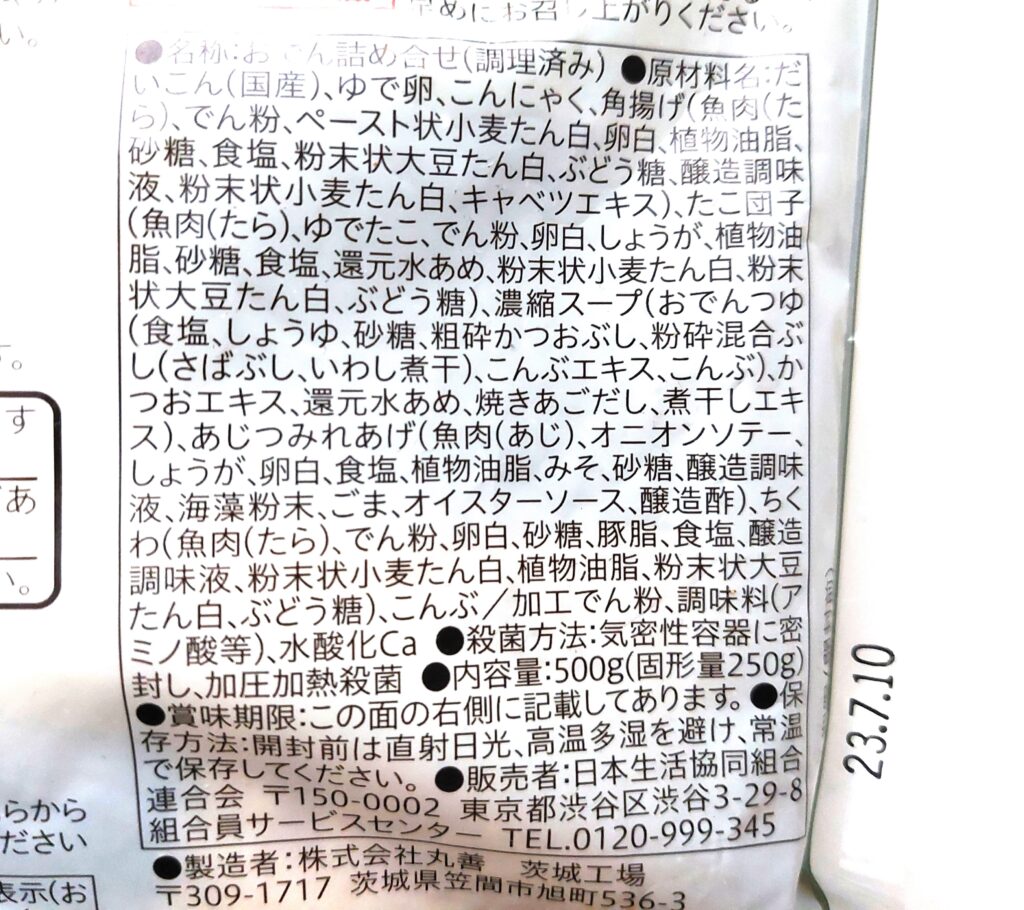 早めにお召し上がりください。
い。
●名称:おでん詰め合せ(調理済み) ●原材料名:だ
いこん(国産)、ゆで卵、こんにゃく、角揚げ(魚肉(た
ら)、でん粉、ペースト状小麦たん白、卵白、植物油脂、
砂糖、食塩、粉末状大豆たん白、ぶどう糖、醸造調味
液、粉末状小麦たん白、キャベツエキス)、たこ団子
(魚肉(たら)、ゆでたこ、でん粉、卵白、しょうが、植物油
脂、砂糖、食塩、還元水あめ、粉末状小麦たん白、粉末
状大豆たん白、ぶどう糖)、濃縮スープ(おでんつゆ
(食塩、しょうゆ、砂糖、粗砕かつおぶし、粉砕混合ぶ
し(さばぶし、いわし煮干)、こんぶエキス、こんぶ)、か
つおエキス、還元水あめ、焼きあごだし、煮干しエキ
ス)、あじつみれあげ(魚肉(あじ)、オニオンソテー、
しょうが、卵白、食塩、植物油脂、みそ、砂糖、醸造調味
液、海藻粉末、ごま、オイスターソース、醸造酢)、ちく
わ(魚肉(たら)、でん粉、卵白、砂糖、豚脂、食塩、醸造
調味液、粉末状小麦たん白、植物油脂、粉末状大豆
たん白、ぶどう糖)、こんぶ/加工でん粉、調味料(ア
ミノ酸等)、水酸化Ca ●殺菌方法:気密性容器に密
封し、加圧加熱殺菌 ●内容量:500g(固形量250g)
●賞味期限:この面の右側に記載してあります。●保
存方法:開封前は直射日光、高温多湿を避け、常温
で保存してください。 ●販売者:日本生活協同組合
連合会 〒150-0002 東京都渋谷区渋谷3-29-8
組合員サービスセンター TEL.0120-999-345
●製造者:株式会社丸善 茨城工場
〒309-1717 茨城県笠間市旭町536-3
す。
す
あ
い。
らから
ださい
表示(お
23.7.10